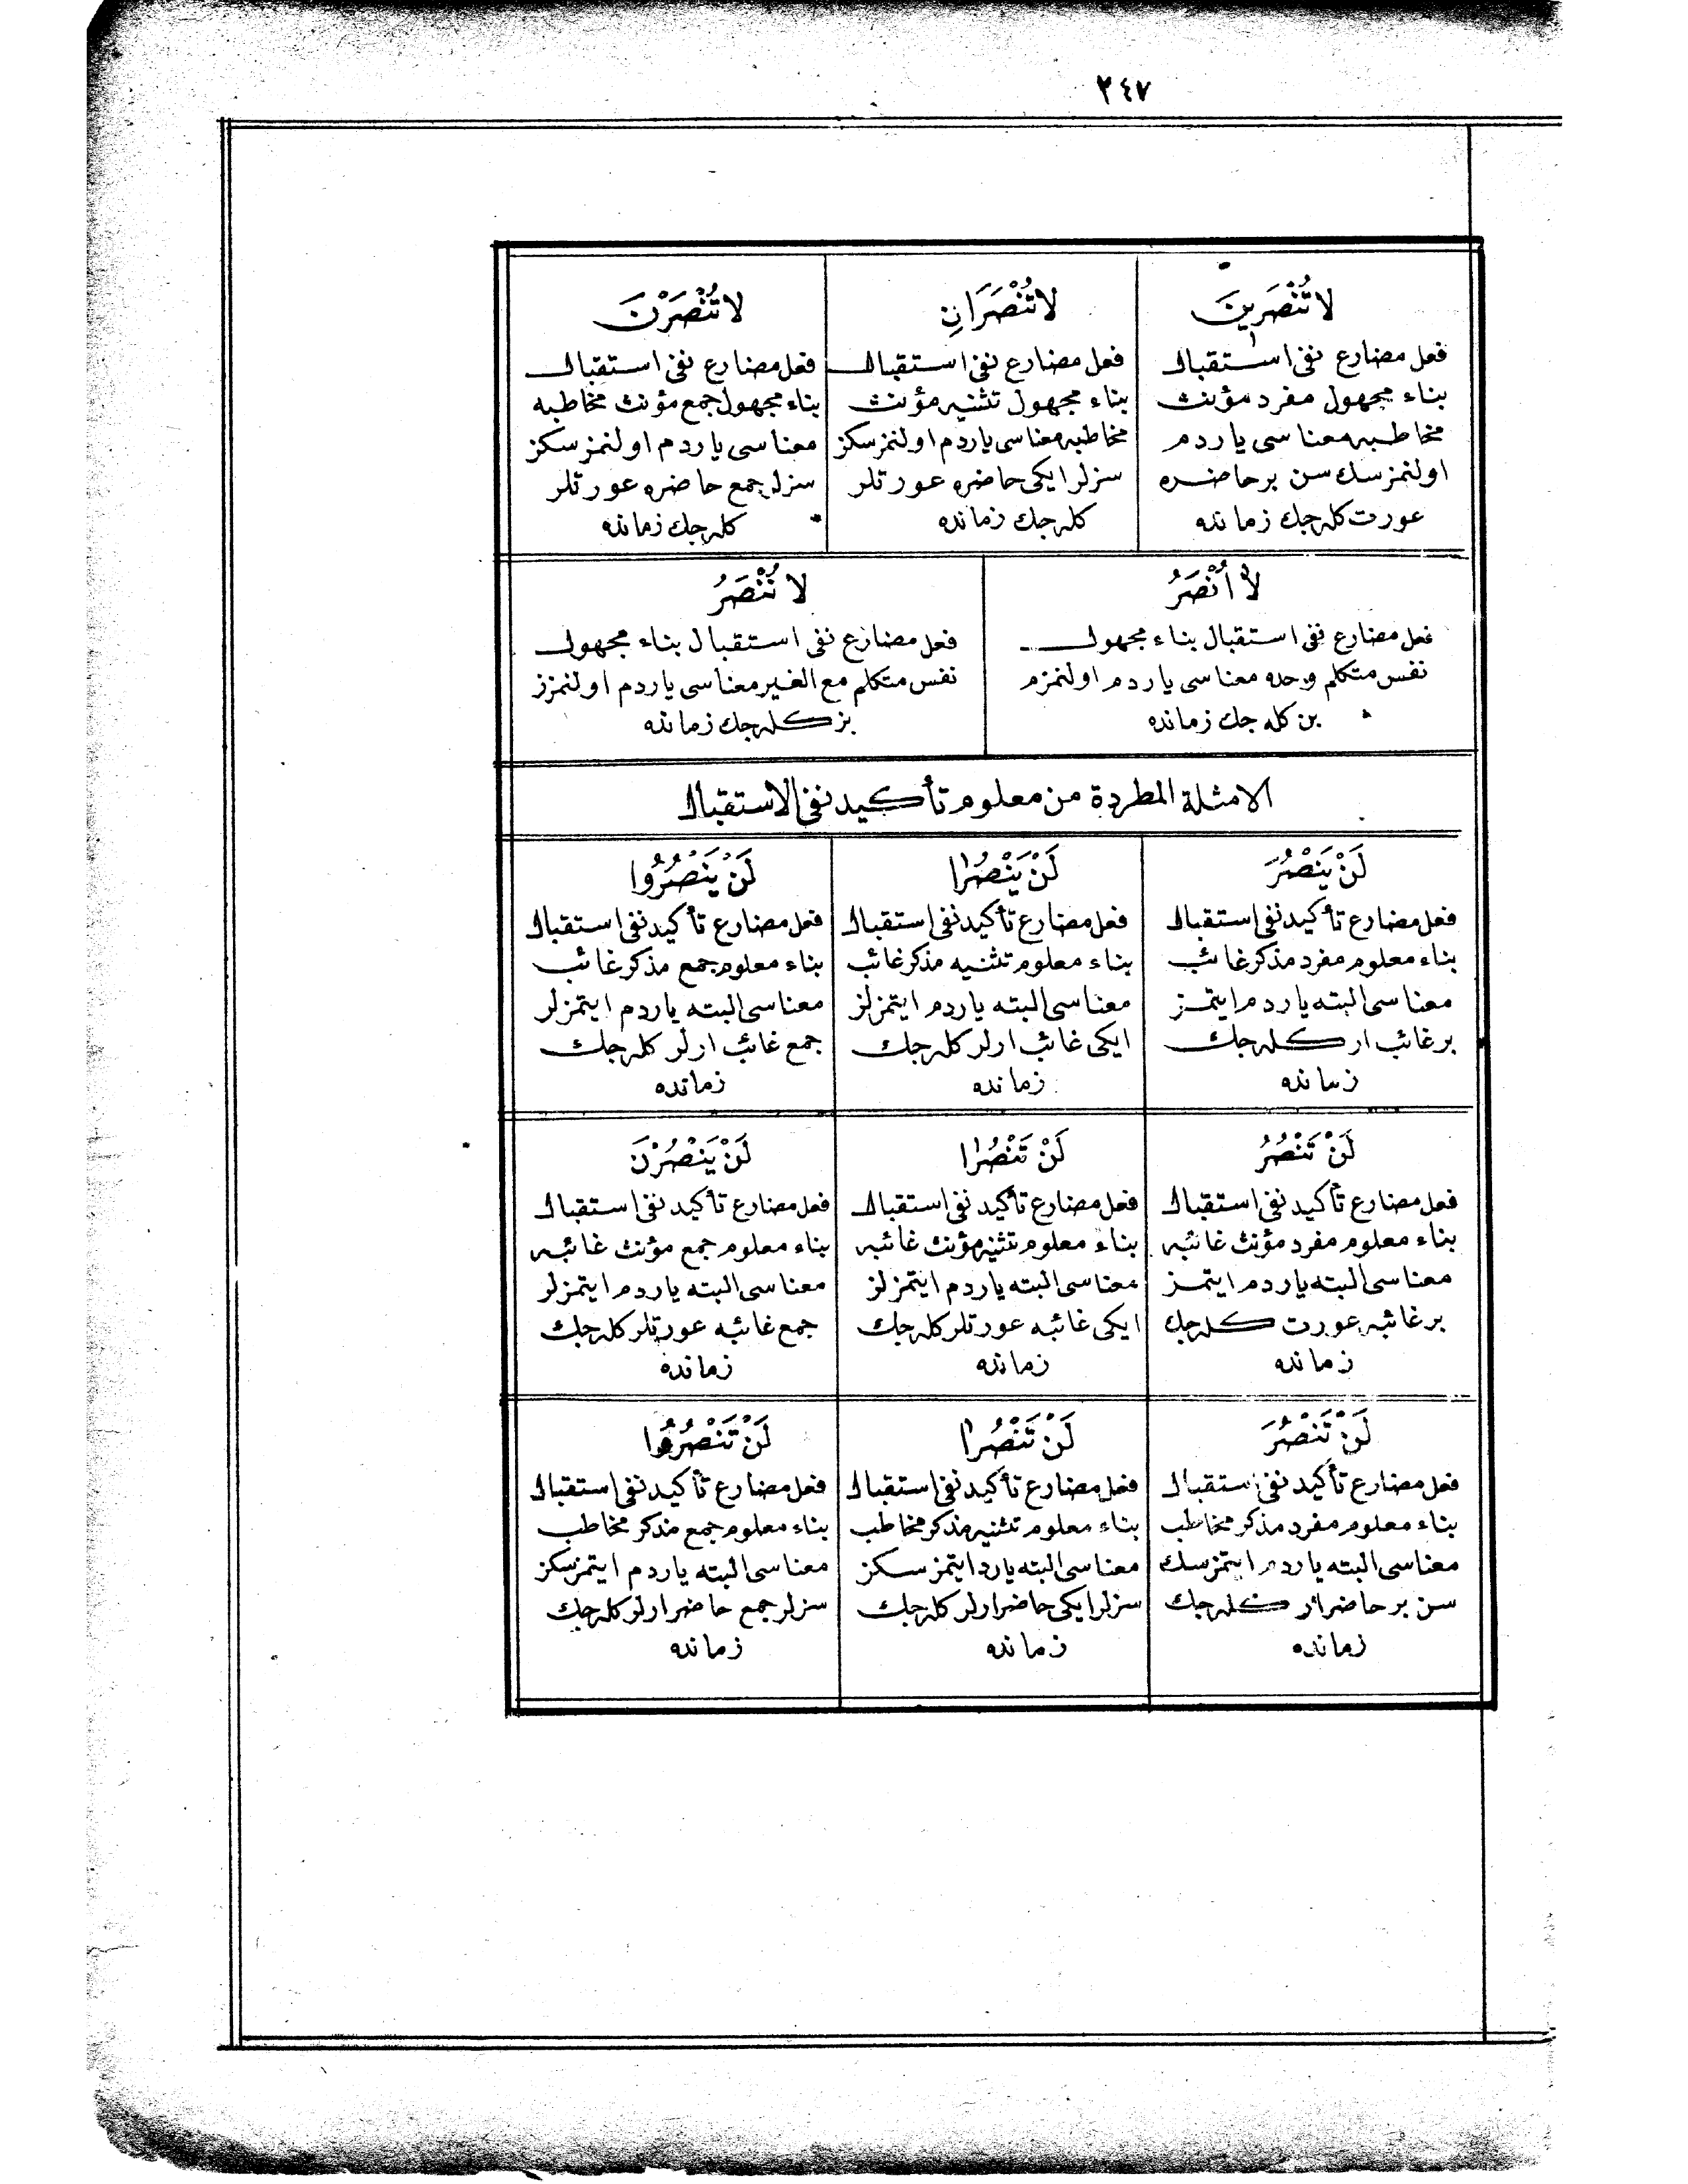 ٢٤٧
لا تُنْصَرِينَ
فعل مضارع نفى استقبال
بناء مجهول مفرد مؤنث
مخاطبه معناسى ياردم
اولنمزسك سن بر حاضره
عورت كله جك زمانده
لا تُنْصَرَانِ
فعل مضارع نفى استقبال
بناء مجهول تثنيه مؤنث
مخاطبه معناسى ياردم اولنمزسكز
سزلر ايكى حاضره عورتلر
كله جك زمانده
لا تُنْصَرْنَ
فعل مضارع نفى استقبال
بناء مجهول جمع مؤنث مخاطبه
معناسى ياردم اولنمزسكز
سزلر جمع حاضره عورتلر
كله جك زمانده
لا أُنْصَرُ
فعل مضارع نفى استقبال بناء مجهول
نفس متكلم وحده معناسى ياردم اولنمزم
بن كله جك زمانده
لا نُنْصَرُ
فعل مضارع نفى استقبال بناء مجهول
نفس متكلم مع الغير معناسى ياردم اولنمزز
بز كله جك زمانده
الامثلة المطردة من معلوم تأكيد نفى الاستقبال
لَنْ يَنْصُرَ
فعل مضارع تأكيد نفى استقبال
بناء معلوم مفرد مذكر غائب
معناسى البته ياردم ايتمز
بر غائب ار كله جك
زمانده
لَنْ يَنْصُرٰا
فعل مضارع تأكيد نفى استقبال
بناء معلوم تثنيه مذكر غائب
معناسى البته ياردم ايتمزلر
ايكى غائب ارلر كله جك
زمانده
لَنْ يَنْصُرُوا
فعل مضارع تأكيد نفى استقبال
بناء معلوم جمع مذكر غائب
معناسى البته ياردم ايتمزلر
جمع غائب ارلر كله جك
زمانده
لَنْ تَنْصُرُ
فعل مضارع تأكيد نفى استقبال
بناء معلوم مفرد مؤنث غائبه
معناسى البته ياردم ايتمز
بر غائبه عورت كله جك
زمانده
لَنْ تَنْصُرٰا
فعل مضارع تأكيد نفى استقبال
بناء معلوم تثنيه مؤنث غائبه
معناسى البته ياردم ايتمزلر
ايكى غائبه عورتلر كله جك
زمانده
لَنْ يَنْصُرْنَ
فعل مضارع تأكيد نفى استقبال
بناء معلوم جمع مؤنث غائبه
معناسى البته ياردم ايتمزلر
جمع غائبه عورتلر كله جك
زمانده
لَنْ تَنْصُرَ
فعل مضارع تأكيد نفى استقبال
بناء معلوم مفرد مذكر مخاطب
معناسى البته ياردم ايتمزسك
سن بر حاضر ار كله جك
زمانده
لَنْ تَنْصُرٰا
فعل مضارع تأكيد نفى استقبال
بناء معلوم تثنيه مذكر مخاطب
معناسى البته يارد ايتمزسكز
سزلر ايكى حاضر ارلر كله جك
زمانده
لَنْ تَنْصُرُوا
فعل مضارع تأكيد نفى استقبال
بناء معلوم جمع مذكر مخاطب
معناسى البته ياردم ايتمزسكز
سزلر جمع حاضر ارلر كله جك
زمانده